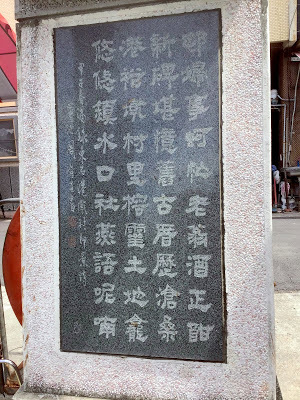 邨婦事何忙老翁酒正酣
新碑堪懷舊古厝歷滄桑
港裕榮村里榕靈土地龕
悠悠鎮水口社燕語呢喃